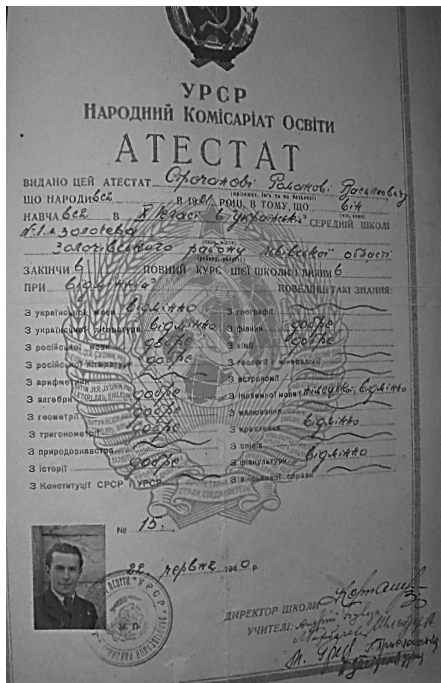 УРСР
НАРОДНИЙ КОМІСАРІАТ ОСВІТИ
АТЕСТАТ
ВИДАНО ЦЕЙ АТЕСТАТ Строчанові Романові Васильовичу
ЩО НАРОДИВСЯ В 1921 РОЦІ, В ТОМУ, ЩО він
НАВЧАВСЯ В X класі української СЕРЕДНІЙ ШКОЛІ
№ 1 м. Золочева
Золочівського району Львівської області
ЗАКІНЧИВ ПОВНИЙ КУРС ЦІЄЇ ШКОЛИ І ВИЯВИВ
ПРИ відмінній ПОВЕДІНЦІ ТАКІ ЗНАННЯ:
З української мови відмінно
З української літератури відмінно
З російської мови добре
З російської літератури добре
З арифметики
З алгебри добре
З геометрії добре
З тригонометрії добре
З природознавства
З історії добре
З Конституції СРСР і УРСР
З географії
З фізики добре
З хімії добре
З геології і мінералогії
З астрономії
З іноземної мови німецької відмінно
З малювання
З креслення відмінно
З співів
З фізкультури відмінно
З військової справи
№ 15.
22 червня 1940 р.
М. П.
УРСР
ДИРЕКТОР ШКОЛИ
УЧИТЕЛІ: